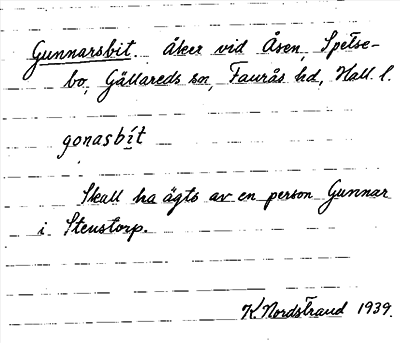 Gunnarsbit. åker vid Åsen, Spetse-
bo, Gällareds sn, Faurås hd, Hall. l.
gonasbít
Skall ha ägts av en person Gunnar
i Stenstorp.
K. Nordstrand 1939.